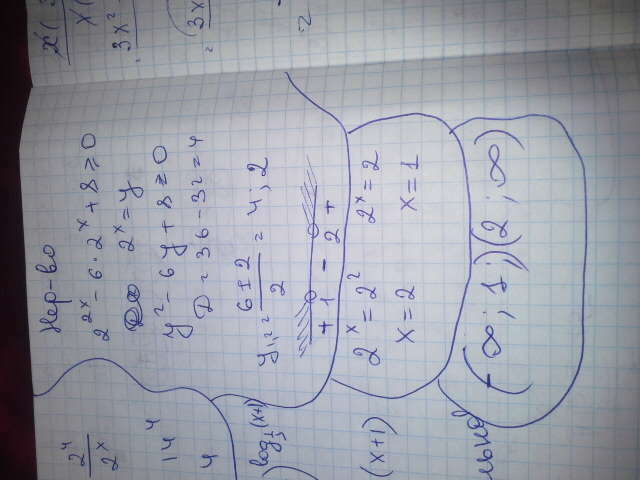 Нер-во
2^{2x} - 6 · 2^x + 8 ≥ 0
2^x = y
y² - 6y + 8 ≥ 0
D = 36 - 32 = 4
y_{1,2} = \frac{6±2}{2} = 4; 2
+ 1 - 2 +
2^x = 2² 2^x = 2
x = 2 x = 1
(-∞; 1;)(2; ∞)
\frac{2^4}{2^x}
14^4
4
log_{\frac{1}{3}}(x+1)
(x+1)